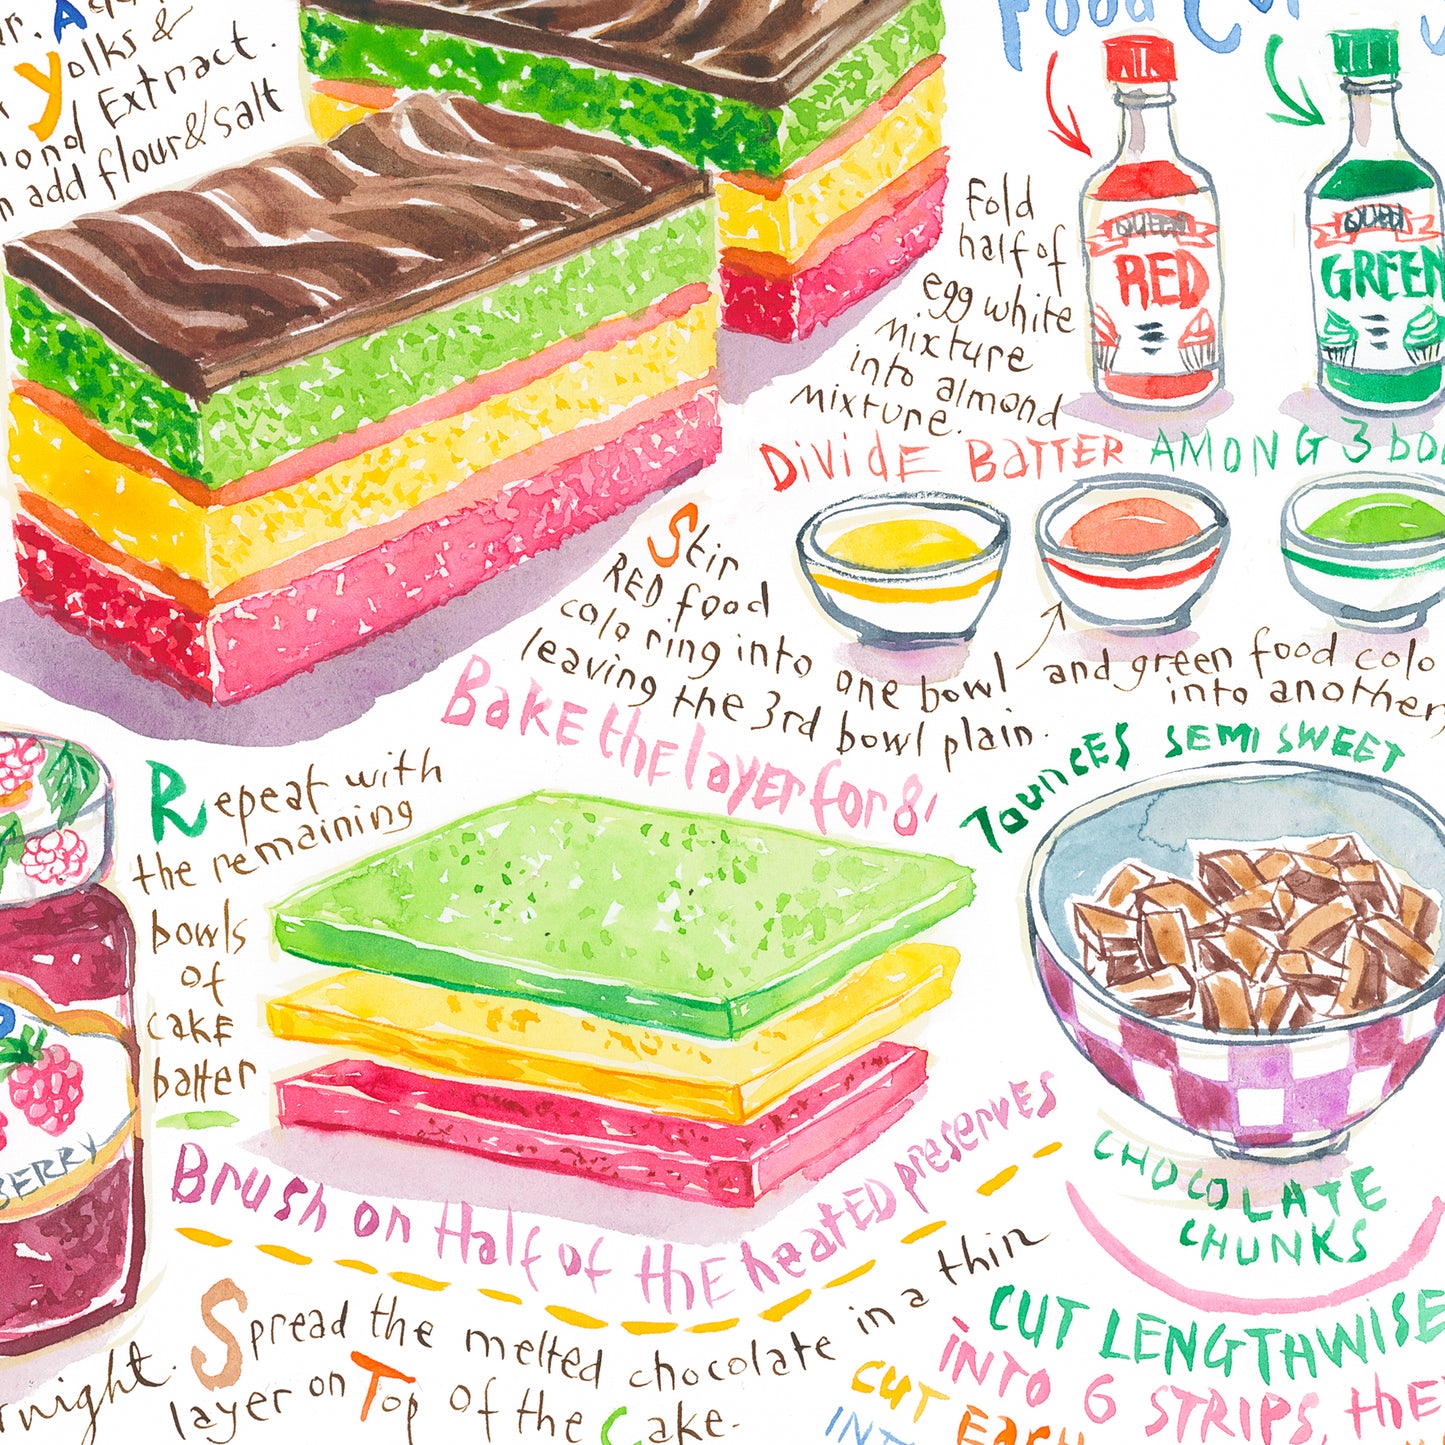 yolks &
Extract.
add flour & salt
Food
QUEEN
RED
QUEEN
GREEN
Fold
half of
egg white
mixture
into almond
mixture.
DiVidE BaTTER AMONG 3
Stir
RED food
coloring into one bowl
leaving the 3rd bowl plain.
and green food colo
into another,
BaKE thE layEr for 8'
7ounCES SEMI SWEET
CHOCOLATE
CHUNKS
Repeat with
the remaining
bowls
of
CAKE
batter
BERRY
Brush on Half of thE heatED preserVES
Spread the melted chocolate in a thin
layer on Top of the Cake.
night.
CUT LENGTHWISE
iNTO 6 STRIPS, thE
CUT EACH
INT